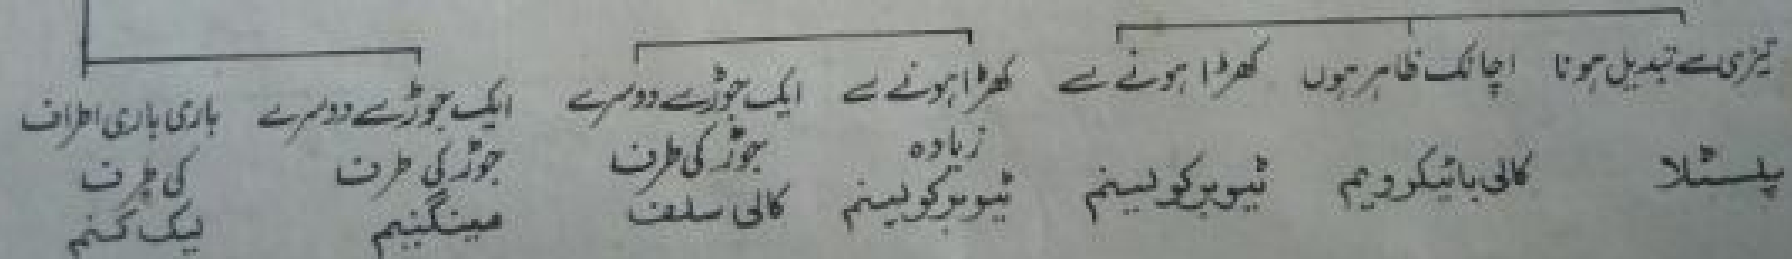 تیزی سے تبدیل ہونا
پلسٹلا
اچانک ظاہر ہوں
کالی بائیکرویم
کھڑا ہونے سے
ٹیوبرکولینم
کھڑا ہونے سے
زیادہ
ٹیوبرکولینم
ایک جوڑ سے دوسرے
جوڑ کی طرف
کالی سلف
ایک جوڑ سے دوسرے
جوڑ کی طرف
مینگنیم
باری باری اطراف
کی طرف
لیک کنم